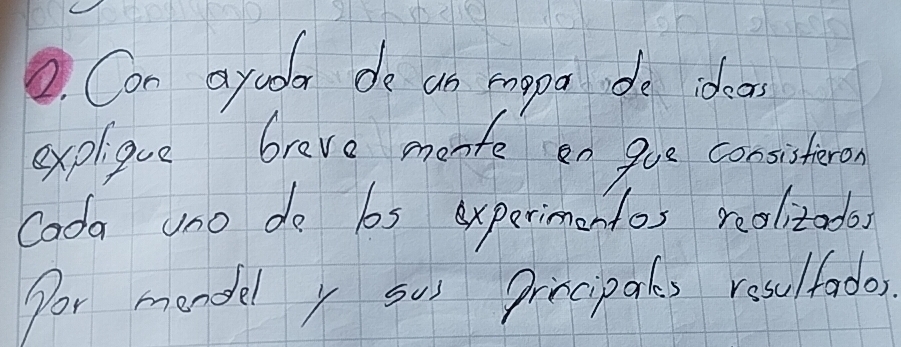 2. Con ayuda de un mapa de ideas
explique breve mente en que consistieron
Cada uno de los experimentos realizados
Por mendel y sus principales resultados.